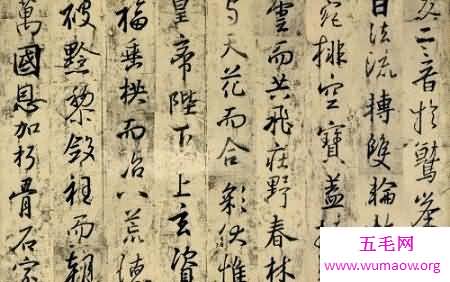 交二音於鷲峯
日法流轉雙輪於
菀排空寶蓋接
雲而共飛莊野春林
与天花而合彩伏惟
皇帝陛下上玄資
福垂拱而治八荒德
被黔黎斂衽而朝
萬國恩加朽骨石室
五毛网
www.wumaow.org